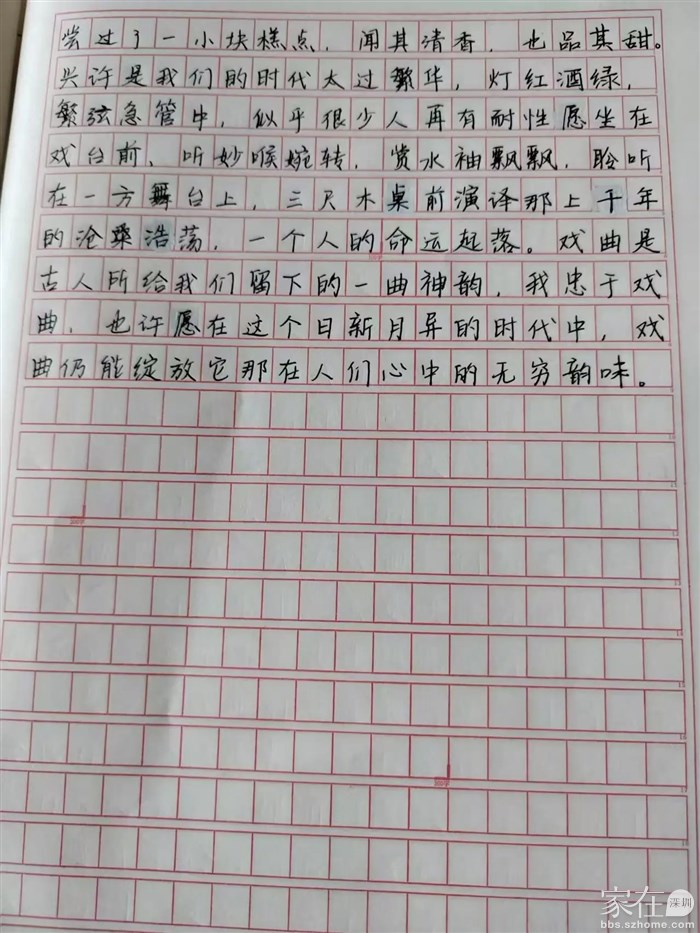 尝过了一小块糕点，闻其清香，也品其甜。
兴许是我们的时代太过繁华，灯红酒绿，
繁弦急管中，似乎很少人再有耐性愿坐在
戏台前、听妙喉婉转，赏水袖飘飘，聆听
在一方舞台上，三尺木桌前演译那上千年
的沧桑浩荡，一个人的命运起落。戏曲是
古人所给我们留下的一曲神韵，我忠于戏
曲，也许愿在这个日新月异的时代中，戏
曲仍能绽放它那在人们心中的无穷韵味。
家在深圳
bbs.szhome.com